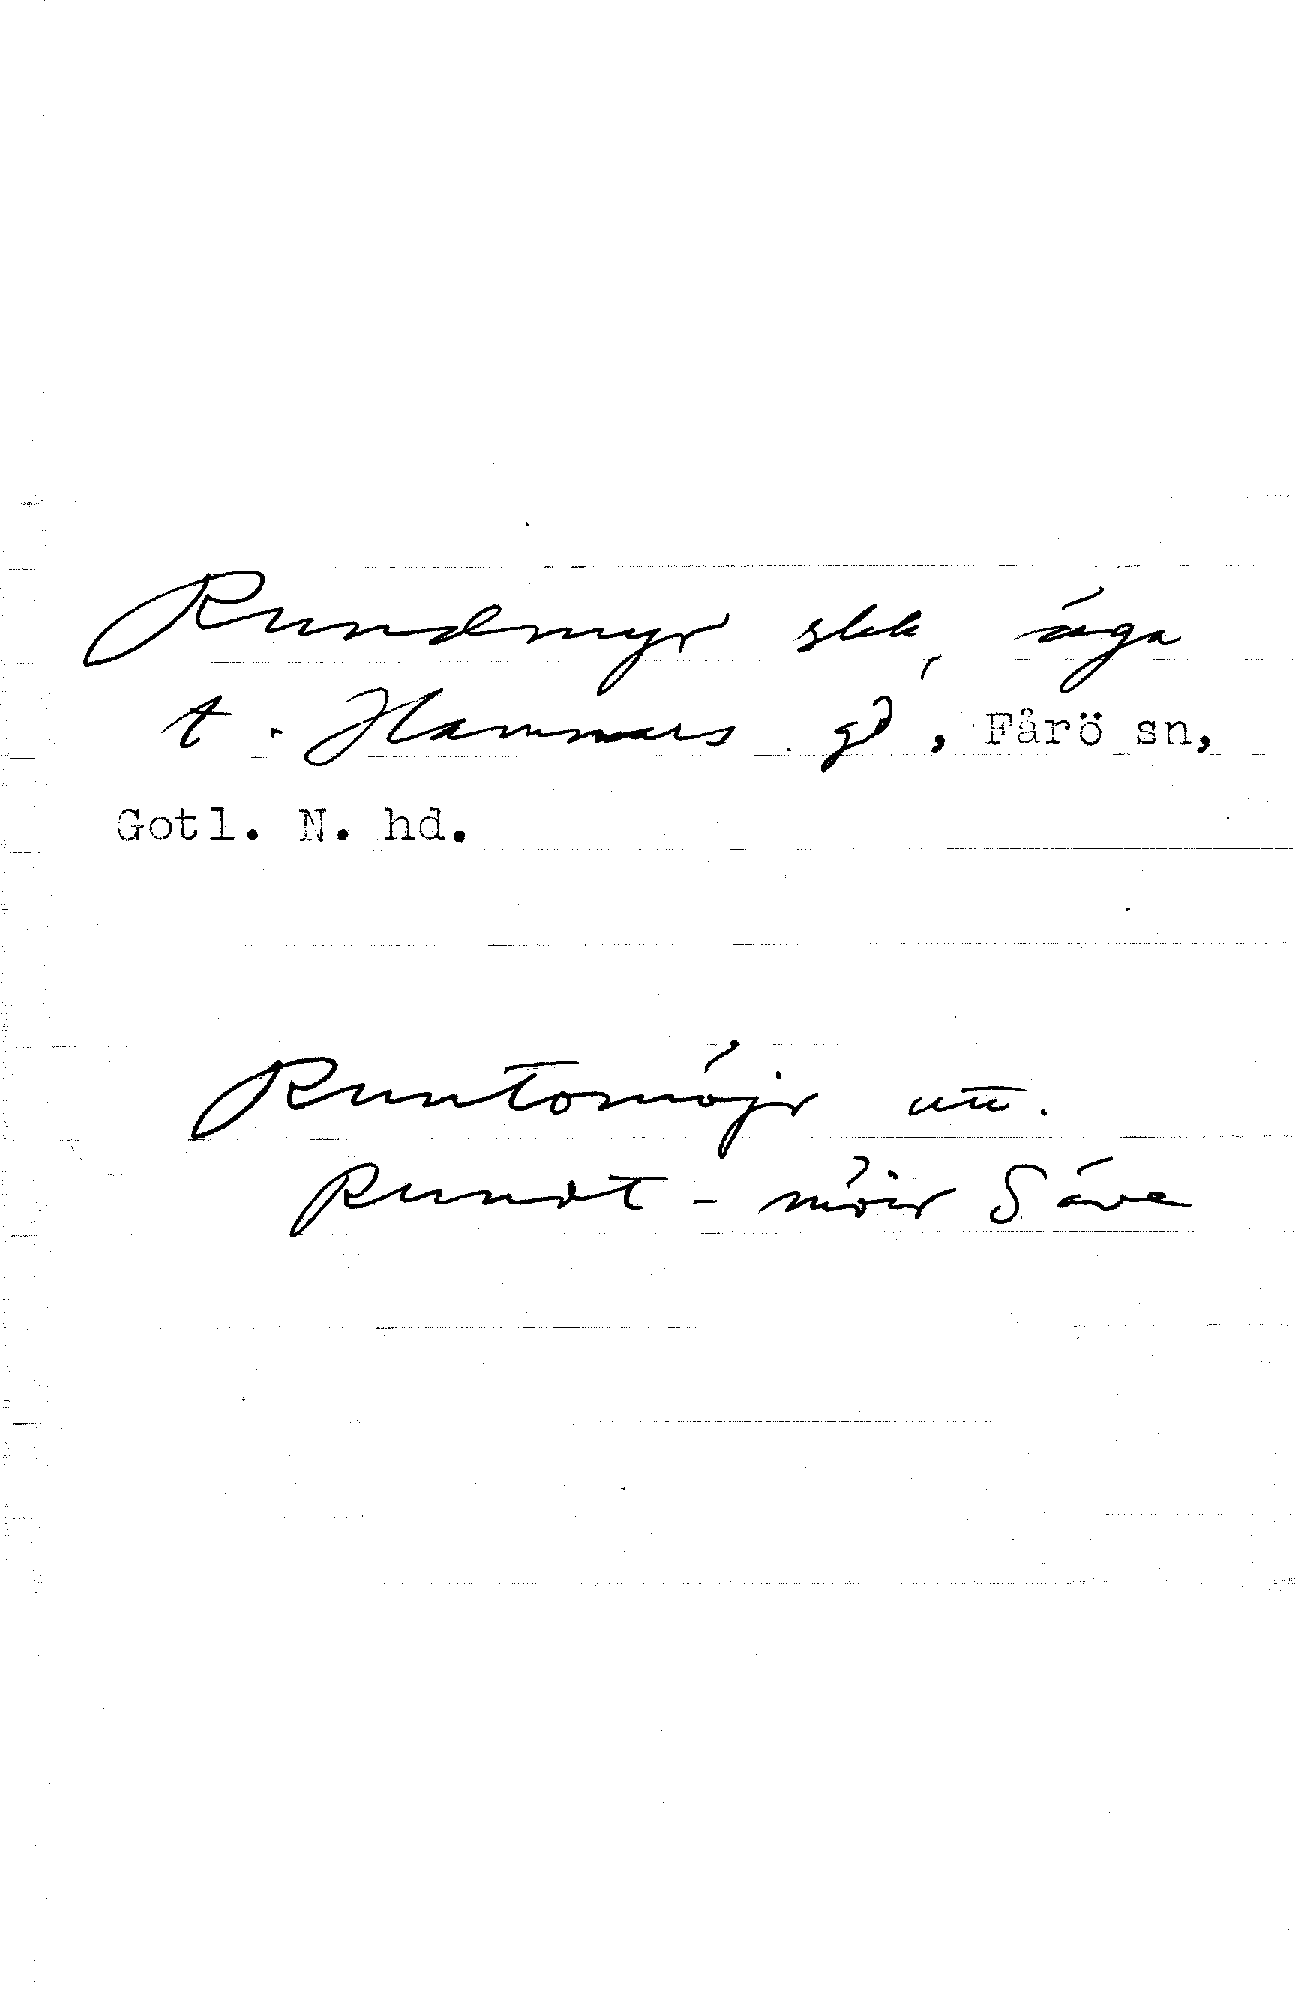 Rundmyr skk, äga
t. Hammars gd, Fårö sn,
Gotl. N. hd.
Runtomöjr utt.
Rundt - möir Säve